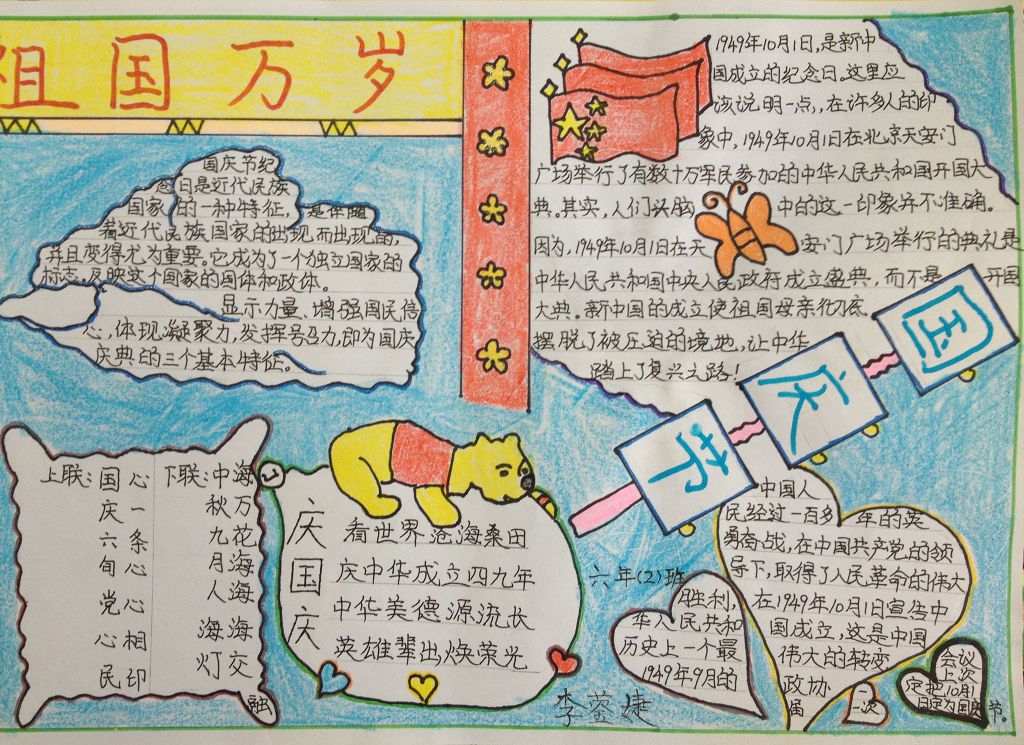 祖国万岁
国庆节纪
念日是近代民族
国家的一种特征,是伴随
着近代民族国家的出现而出现的,
并且变得尤为重要。它成为了一个独立国家的
标志,反映这个国家的国体和政体。
显示力量、增强国民信
心,体现凝聚力,发挥号召力,即为国庆
庆典的三个基本特征。
1949年10月1日,是新中
国成立的纪念日。这里应
该说明一点,在许多人的印
象中,1949年10月1日在北京天安门
广场举行了有数十万军民参加的中华人民共和国开国大
典。其实,人们头脑中的这一印象并不准确。
因为,1949年10月1日在天安门广场举行的典礼是
中华人民共和国中央人民政府成立盛典,而不是开国
大典。新中国的成立使祖国母亲彻底
摆脱了被压迫的境地,让中华
踏上了复兴之路!
国庆节
上联:国庆六旬党心民
心一条心心相印
下联:中秋九月人海灯
海万花海海交融
庆国庆
看世界沧海桑田
庆中华成立四九年
中华美德源流长
英雄辈出焕荣光
六年(2)班
李蓥婕
中国人
民经过一百多年的英
勇奋战,在中国共产党的领
导下,取得了人民革命的伟大
胜利,
在1949年10月1日宣告中
华人民共和
国成立,这是中国
历史上一个最
伟大的转变
1949年9月的
政协
一届
一次
会议
上次
定把10月1
日定为国庆节。